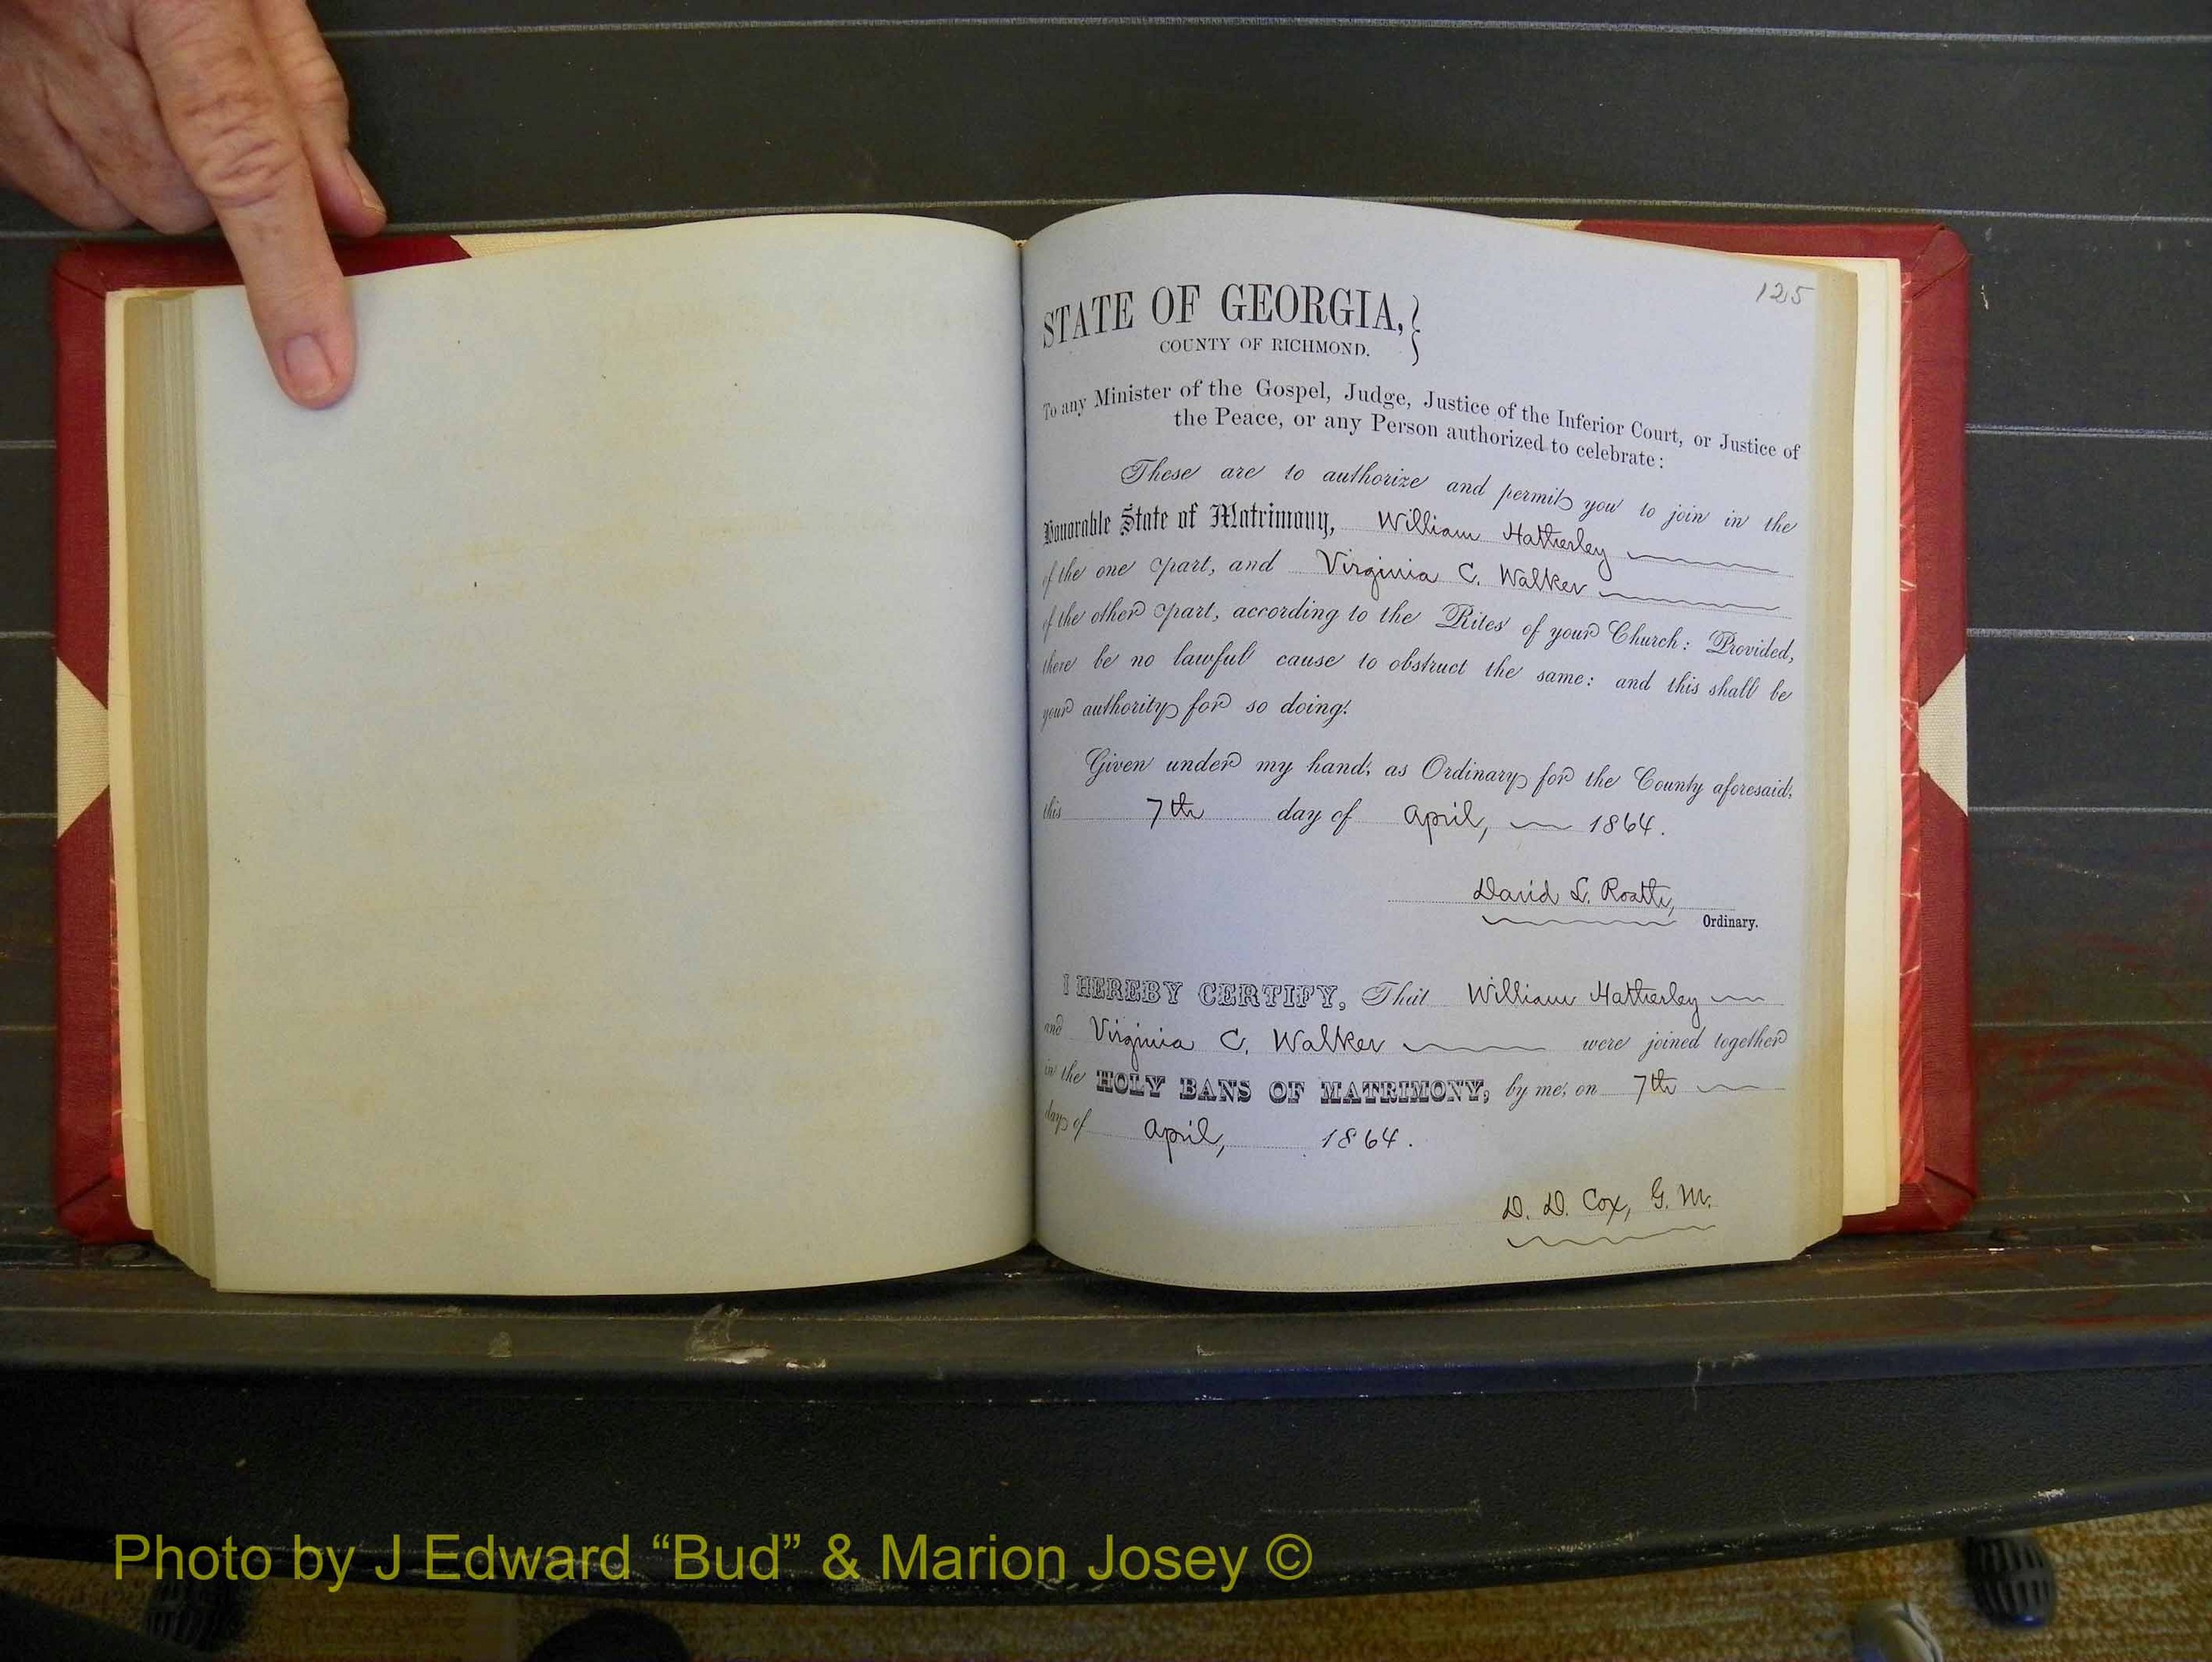 125
STATE OF GEORGIA,
COUNTY OF RICHMOND.
To any Minister of the Gospel, Judge, Justice of the Inferior Court, or Justice of
the Peace, or any Person authorized to celebrate:
These are to authorize and permit you to join in the
Honorable State of Matrimony, William Hatherley
of the one part, and Virginia C. Walker
of the other part, according to the Rites of your Church: Provided,
there be no lawful cause to obstruct the same: and this shall be
your authority for so doing.
Given under my hand, as Ordinary for the County aforesaid,
this 7th day of April, 1864.
David L. Roath,
Ordinary.
I HEREBY CERTIFY, That William Hatherley
and Virginia C. Walker were joined together
in the HOLY BANS OF MATRIMONY, by me, on 7th
day of April, 1864.
D. D. Cox, G. M.
Photo by J Edward “Bud” & Marion Josey ©